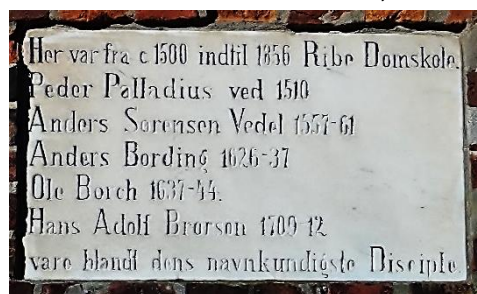 Her var fra c 1500 indtil 1856 Ribe Domskole.
Peder Palladius ved 1510
Anders Sorensen Vedel 1557-61
Anders Bording 1626-37
Ole Borch 1637-44.
Hans Adolf Brorson 1709-12
vare blandt dens navnkundigste Disciple.